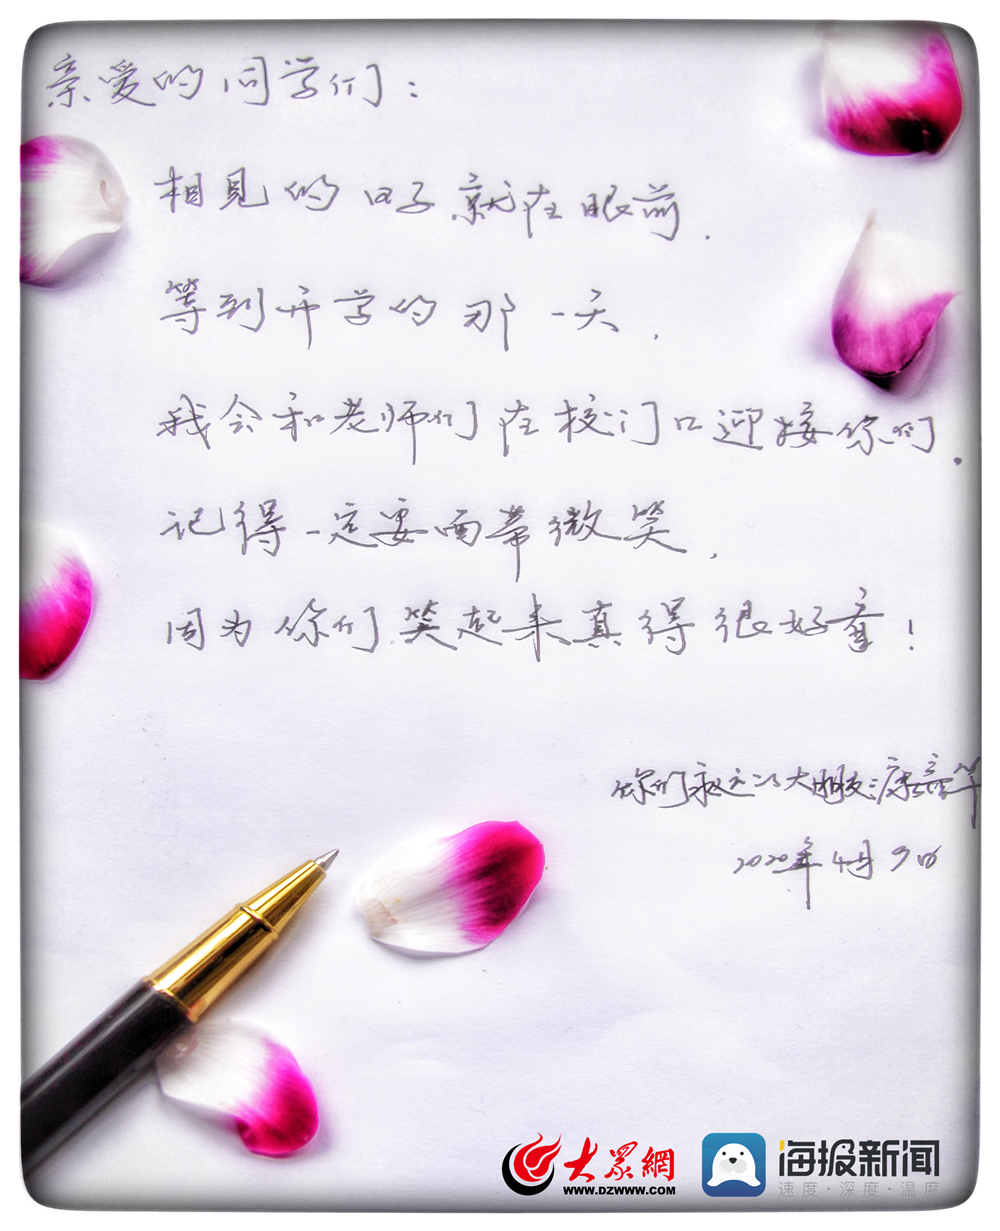 亲爱的同学们：
相见的日子就在眼前．
等到开学的那一天．
我会和老师们在校门口迎接你们．
记得一定要面带微笑．
因为你们笑起来真得很好看！
你们永远的大朋友：康
2020年4月9日
大众網
WWW.DZWWW.COM
海报新闻
速度·深度·温度